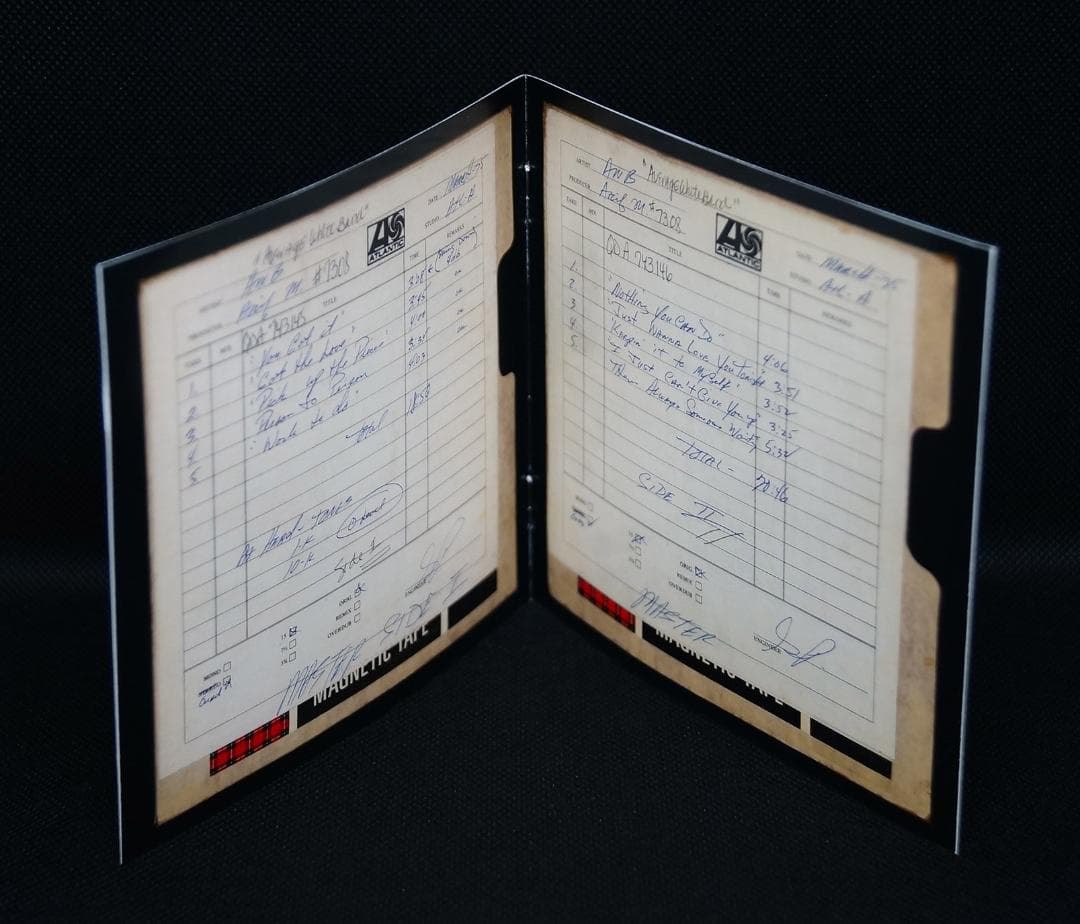 "Average White Band"
ARTIST AWB
Arif M. #7308
ATLANTIC
DATE March 75
STUDIO Atl-A
TITLE TIME REMARKS
QDA 743145
1. "You Got it" 3:28
2. "Got the Love" 3:45
3. "Pick up the Pieces" 4:00
4. Person to Person 3:37
5. "Work to do" 4:23
Total
At Head - Tone
1-K
10-K
Side 1
MONO
15
7½
3¾
ORIG.
REMIX
OVERDUB
ENGINEER
MASTER SIDE I
MAGNETIC TAPE
"Average White Band"
ARTIST AWB
PRODUCER Arif M. #7308
ATLANTIC
DATE March 75
STUDIO Atl-A
TITLE TIME REMARKS
QDA 743146
1. "Nothing You Can Do" 4:06
2. "Just Wanna Love You Tonight" 3:51
3. "Keepin' it to Myself" 3:52
4. "I Just Can't Give You up" 3:25
5. There Always Someone Waiting 5:32
TOTAL - 20:46
SIDE II
ORIG.
REMIX
OVERDUB
ENGINEER
MASTER
MAGNETIC TAPE